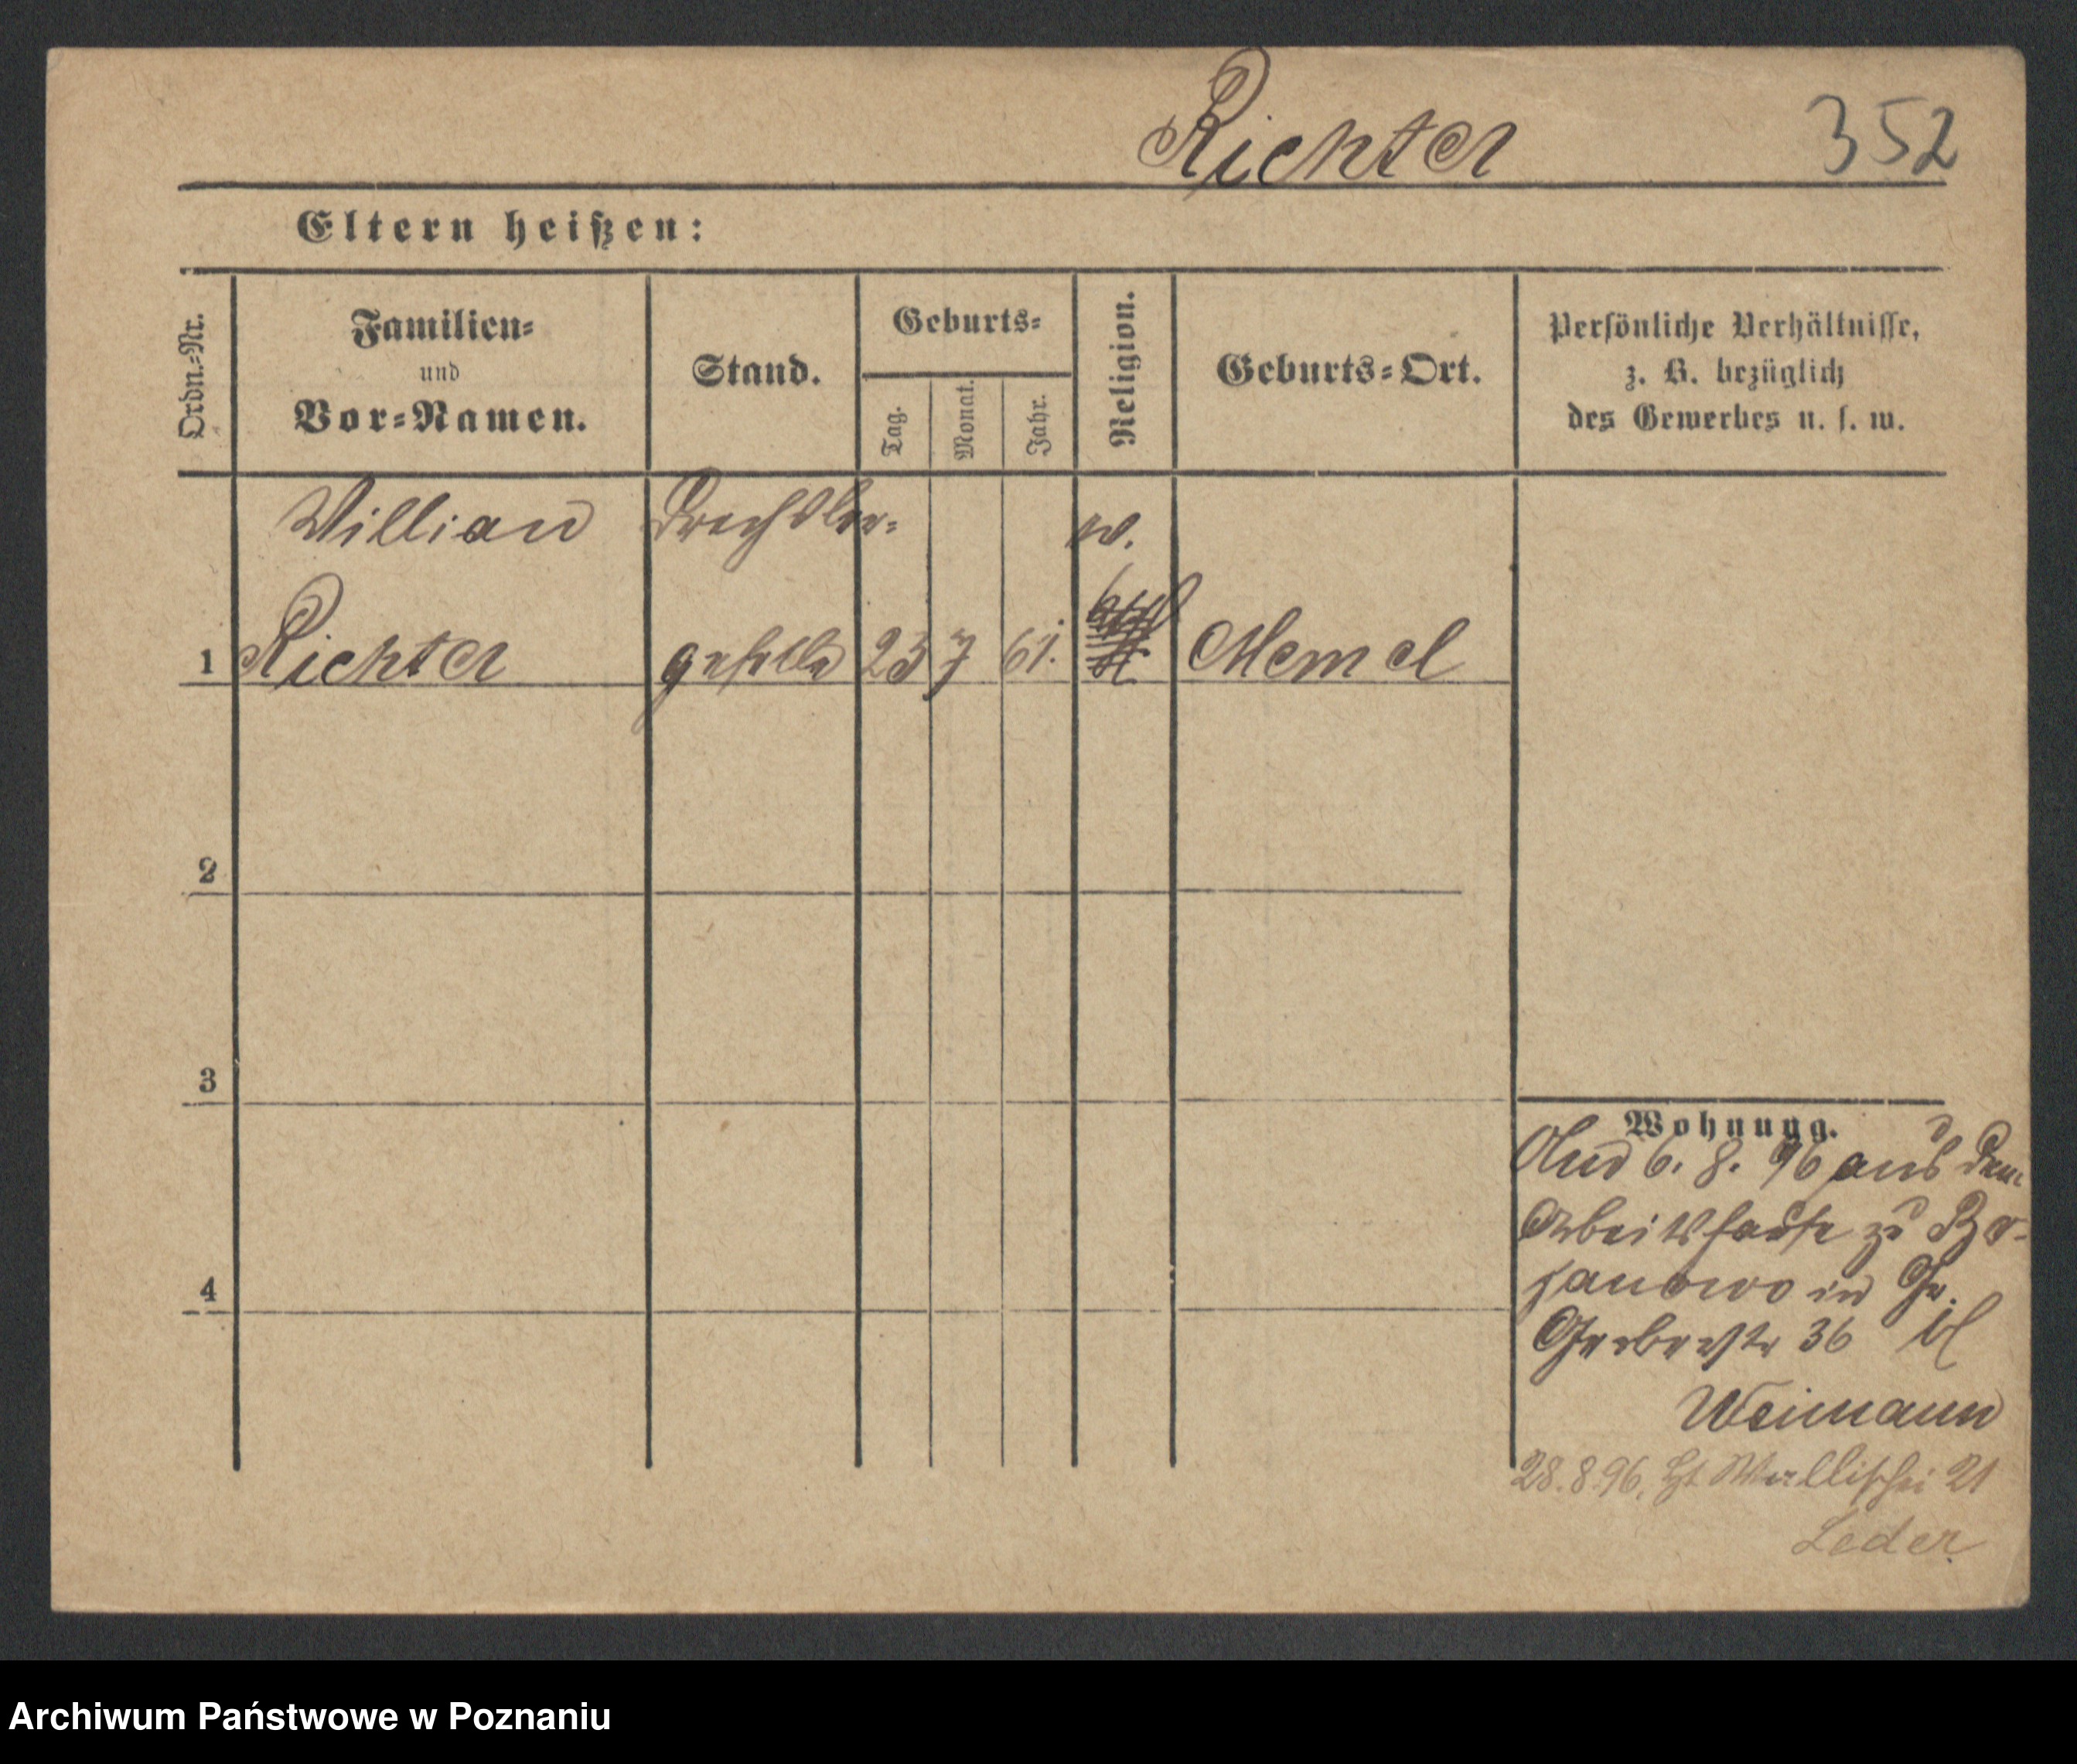 Richter 352
Eltern heißen:
Ordn.-Nr.
Familien-
und
Vor-Namen.
Stand.
Geburts-
Tag.
Monat.
Jahr.
Religion.
Geburts-Ort.
Persönliche Verhältnisse,
z. B. bezüglich
des Gewerbes u. s. w.
Drechsler- ev.
1 Richter geselle 23 7 61. Memel
2
3
4
Wohnung.
6. 8. 96 aus dem
Arbeitshause zu Bo-
janowo in Gr.
Gerberstr 36
Weimann
28.8.96. Wallischei 21
Leder.
Archiwum Państwowe w Poznaniu